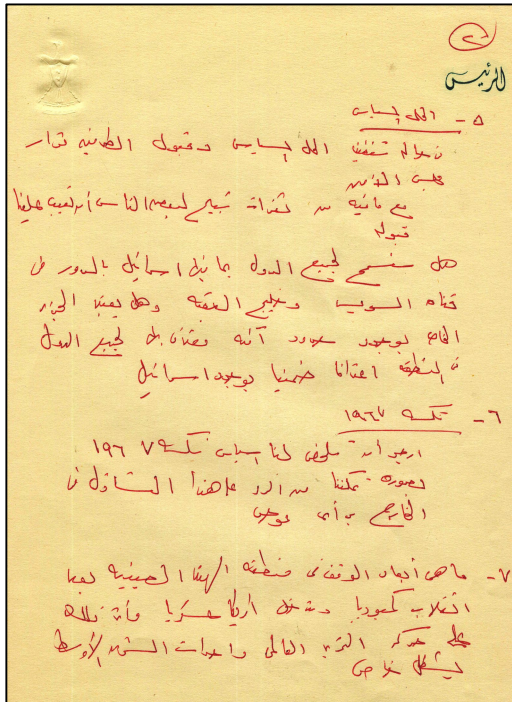 ٢
الرئيس
٥ - الحل السياسى
فى حالة تنفيذ الحل السياسى وقبول الطرفين قرار
مجلس الأمن
مع ما فيه من ثغرات تبيح لبعض الناس أن تعيب علينا
قبوله
هل سنسمح لجميع الدول بما فيها اسرائيل بالمرور فى
قناة السويس وخليج العقبة وهل يعتبر الجزء
الخاص بوجود حدود آمنه لجميع الدول
فى المنطقة اعترافا ضمنيا بوجود اسرائيل
٦ - نكسة ١٩٦٧
ارجو أن تلخص لنا أسباب نكسة ١٩٦٧
بصورة تمكننا من الرد على هذا التساؤل فى
الخارج
٧ - ما هى أبعاد الموقف فى منطقة الهند الصينية بعد
انقلاب كمبوديا وتدخل أمريكا عسكريا ذلك
على حركة التحرر العالمى الشرق الأوسط
بشكل خاص